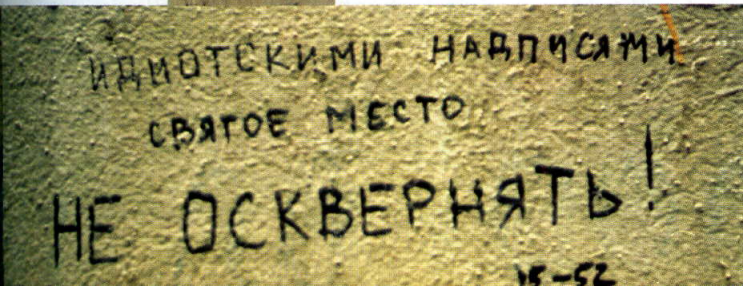 ИДИОТСКИМИ НАДПИСЯМИ
СВЯТОЕ МЕСТО
НЕ ОСКВЕРНЯТЬ!
15-52